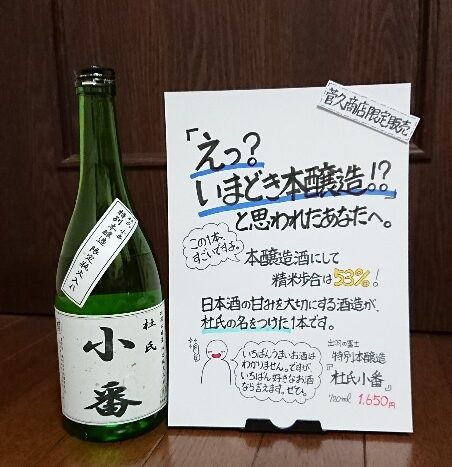 管久商店限定販売
「えっ?
いまどき本醸造!?」
と思われたあなたへ。
この1本、
すごいですよ。
本醸造酒にして
精米歩合は53%!
日本酒の甘みを大切にする酒造が、
杜氏の名をつけた1本です。
いちばんうまいお酒は
わかりません。ですが、
いちばん好きなお酒
なら言えます。ぜひ。
出羽の冨士
特別本醸造
『杜氏小番』
720ml 1,650円
特別本醸造 限定瓶火入れ
杜氏
小番